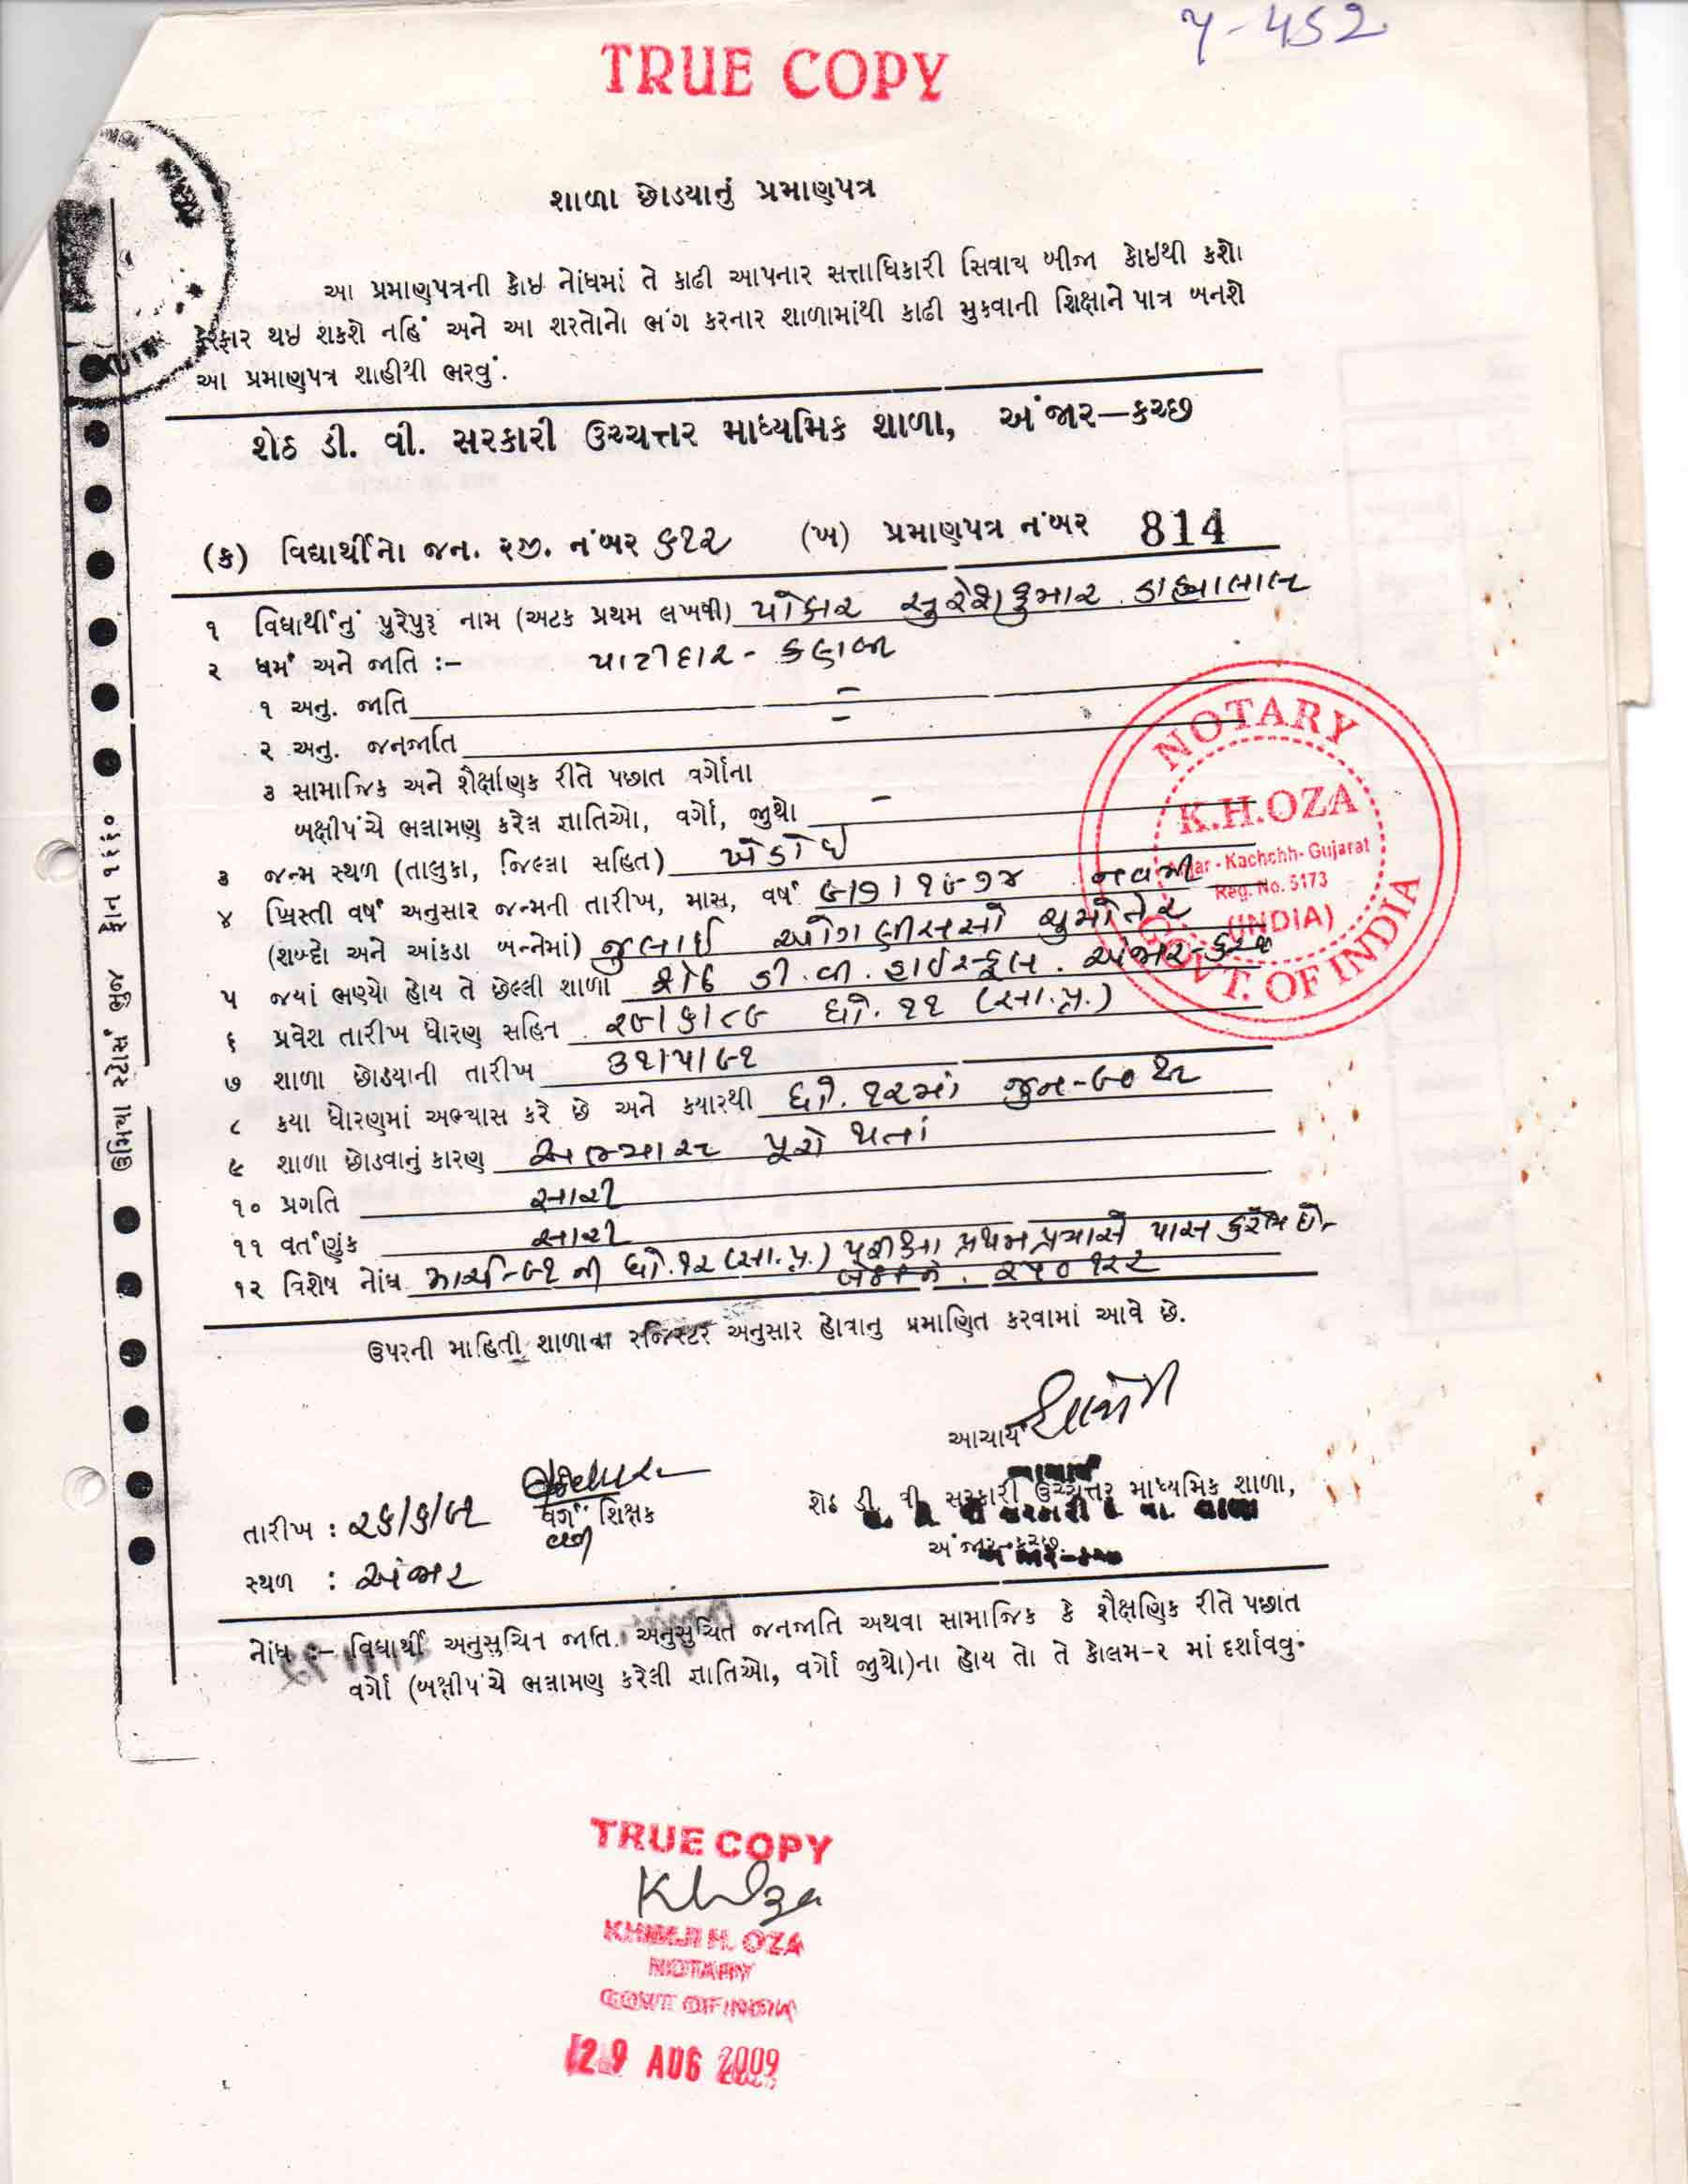 TRUE COPY
૫-452
શાળા છોડયાનું પ્રમાણપત્ર
આ પ્રમાણપત્રની કોઇ નોંધમાં તે કાઢી આપનાર સત્તાધિકારી સિવાય બીજા કોઇથી કશો
ફેરફાર થઇ શકશે નહિં અને આ શરતોનો ભંગ કરનાર શાળામાંથી કાઢી મુકવાની શિક્ષાને પાત્ર બનશે
આ પ્રમાણપત્ર શાહીથી ભરવું.
શેઠ ડી. વી. સરકારી ઉચ્ચત્તર માધ્યમિક શાળા, અંજાર—કચ્છ
(ક) વિદ્યાર્થીનો જન. રજી. નંબર ૬૧૨ (ખ) પ્રમાણપત્ર નંબર 814
૧ વિદ્યાર્થીનું પુરેપુરૂ નામ (અટક પ્રથમ લખવી) પોકાર સુરેશકુમાર ડાહ્યાલાલ
૨ ધર્મ અને જાતિ :- પાટીદાર - કણબી
૧ અનુ. જાતિ –
૨ અનુ. જનજાતિ –
૩ સામાજિક અને શૈક્ષણિક રીતે પછાત વર્ગોના
બક્ષીપંચે ભલામણ કરેલ જ્ઞાતિઓ, વર્ગો, જુથો –
૩ જન્મ સ્થળ (તાલુકા, જિલ્લા સહિત) ખેડોઈ
૪ ખ્રિસ્તી વર્ષ અનુસાર જન્મની તારીખ, માસ, વર્ષ ૯।૭।૧૯૭૪ નવમી
(શબ્દો અને આંકડા બન્નેમાં) જુલાઈ ઓગણીસસો ચુમોતેર
૫ જયાં ભણ્યો હોય તે છેલ્લી શાળા શેઠ ડી.વી. હાઈસ્કૂલ. અંજાર-કચ્છ
૬ પ્રવેશ તારીખ ધોરણ સહિત ૨૯।૬।૮૯ ધો. ૧૧ (સા.પ્ર.)
૭ શાળા છોડયાની તારીખ ૩૧।૫।૯૧
૮ કયા ધોરણમાં અભ્યાસ કરે છે અને કયારથી ધો. ૧૨માં જુન-૯૦ થી
૯ શાળા છોડવાનું કારણ અભ્યાસ પૂરો થતાં
૧૦ પ્રગતિ સારી
૧૧ વર્તણુંક સારી
૧૨ વિશેષ નોંધ માર્ચ-૯૧ ની ધો.૧૨ (સા.પ્ર.) પરીક્ષા પ્રથમ પ્રયાસે પાસ કરેલ છે.
બેઠક નં. ૨૫૦૧૨૨
ઉપરની માહિતી શાળાના રજિસ્ટર અનુસાર હોવાનુ પ્રમાણિત કરવામાં આવે છે.
આચાર્ય
તારીખ : ૨૬/૬/૯૧
વર્ગ શિક્ષક
શેઠ ડી. વી સરકારી ઉચ્ચત્તર માધ્યમિક શાળા,
અંજાર-કચ્છ.
સ્થળ : અંજાર
નોંધ :- વિદ્યાર્થી અનુસુચિત જાતિ. અનુસુચિત જનજાતિ અથવા સામાજિક કે શૈક્ષણિક રીતે પછાત
વર્ગો (બક્ષીપંચે ભલામણ કરેલી જ્ઞાતિઓ, વર્ગો જુથો)ના હોય તો તે કોલમ-૨ માં દર્શાવવુ.
ઉમિયા સ્ટોર્સ ભુજ ફોન ૧૬૬૦
NOTARY
K.H.OZA
Anjar - Kachchh- Gujarat
Reg. No. 5173
(INDIA)
GOVT. OF INDIA
TRUE COPY
KHIMJI H. OZA
NOTARY
GOVT OF INDIA
29 AUG 2009